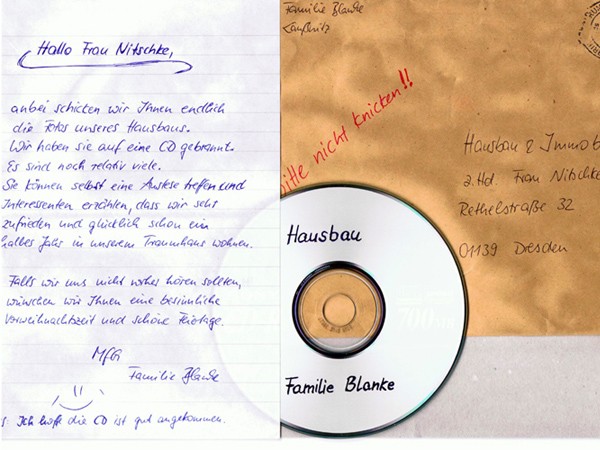 Hallo Frau Nitschke,
anbei schicken wir Ihnen endlich
die Fotos unseres Hausbaus.
Wir haben sie auf eine CD gebrannt.
Es sind noch relativ viele.
Sie können selbst eine Auslese treffen und
Interessenten erzählen, dass wir sehr
zufrieden und glücklich schon ein
halbes Jahr in unserem Traumhaus wohnen.
Falls wir uns nicht vorher hören sollten,
wünschen wir Ihnen eine besinnliche
Vorweihnachtszeit und schöne Feiertage.
MfG
Familie Blanke
Ich hoff die CD ist gut angekommen.
Familie Blanke
bitte nicht knicken!!
Hausbau & Immob
z.Hd. Frau Nitschke
Rethelstraße 32
01139 Dresden
Hausbau
700
Familie Blanke